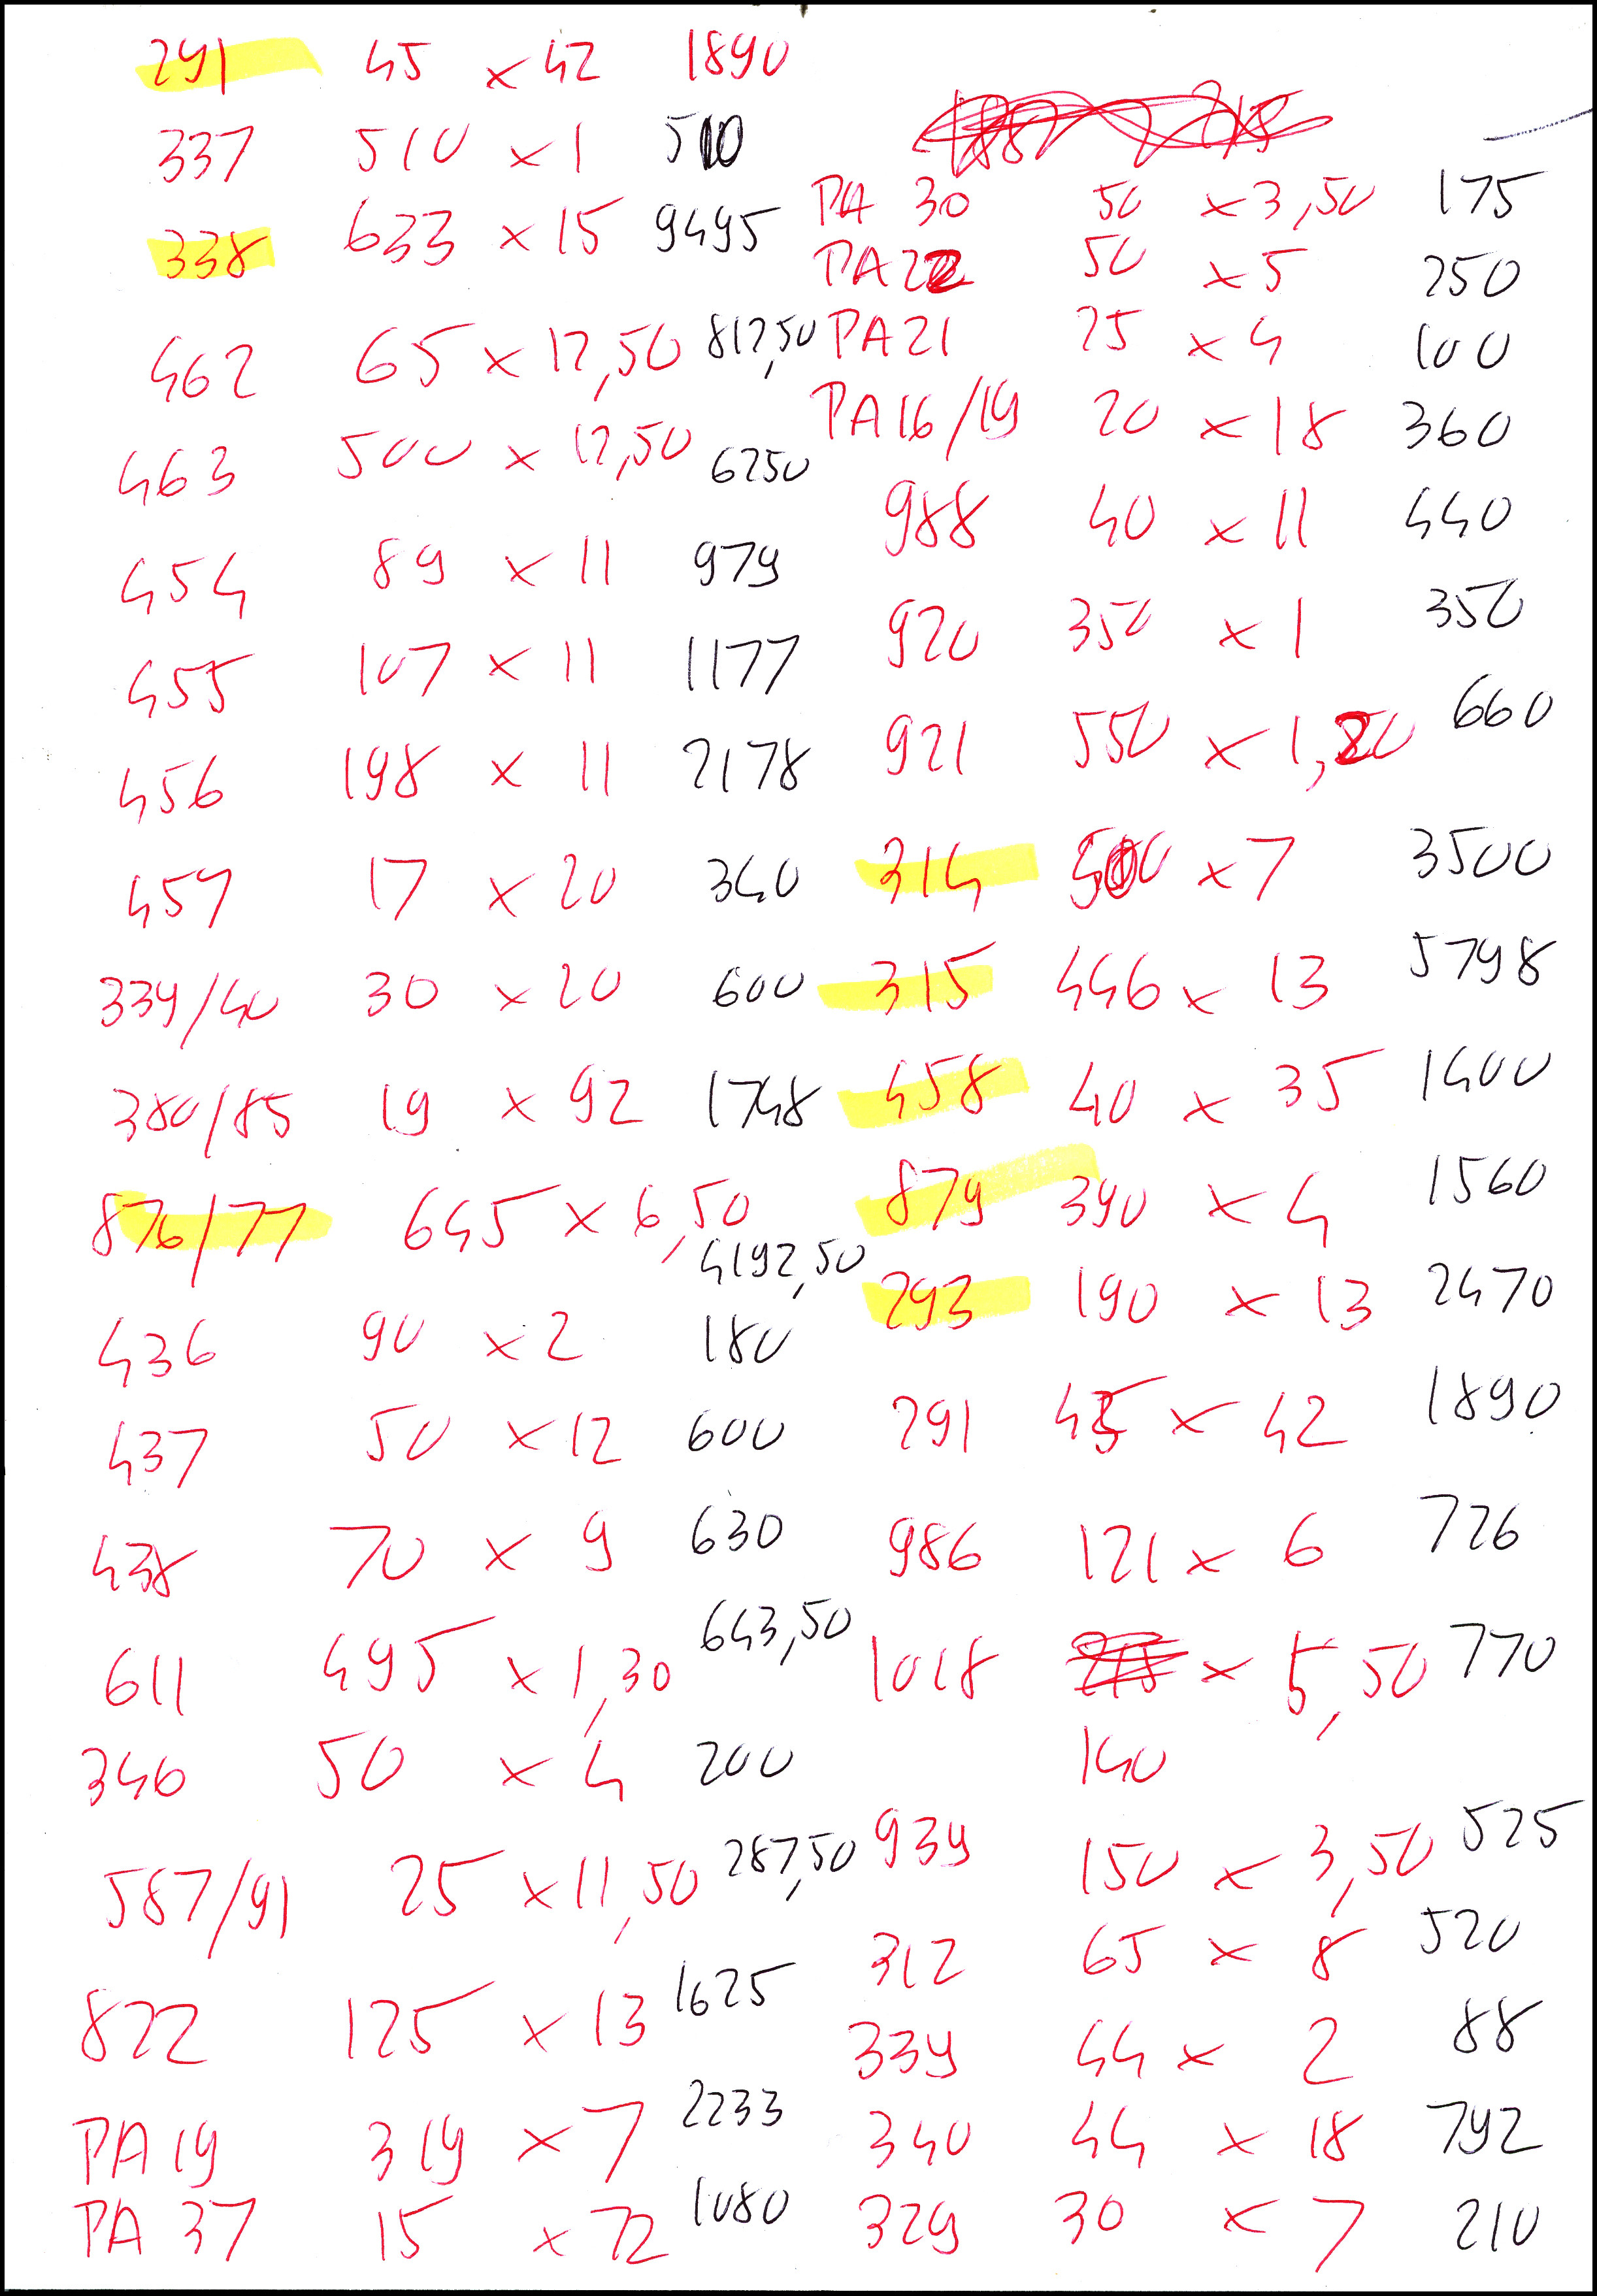 291 45 x 42 1890
337 510 x 1 510
338 633 x 15 9495
462 65 x 12,50 812,50
463 500 x 12,50 6250
454 89 x 11 979
455 107 x 11 1177
456 198 x 11 2178
457 17 x 20 340
339/40 30 x 20 600
380/85 19 x 92 1748
876/77 645 x 6,50 4192,50
436 90 x 2 180
437 50 x 12 600
438 70 x 9 630
611 495 x 1,30 643,50
346 50 x 4 200
587/91 25 x 11,50 287,50
822 125 x 13 1625
PA 19 319 x 7 2233
PA 37 15 x 72 1080
PA 30 50 x 3,50 175
PA 22 50 x 5 250
PA 21 25 x 4 100
PA 16/19 20 x 18 360
988 40 x 11 440
920 350 x 1 350
921 550 x 1,20 660
314 500 x 7 3500
315 446 x 13 5798
458 40 x 35 1400
879 390 x 4 1560
293 190 x 13 2470
291 45 x 42 1890
986 121 x 6 726
1018 x 5,50 770
140
939 150 x 3,50 525
312 65 x 8 520
339 44 x 2 88
340 44 x 18 792
329 30 x 7 210